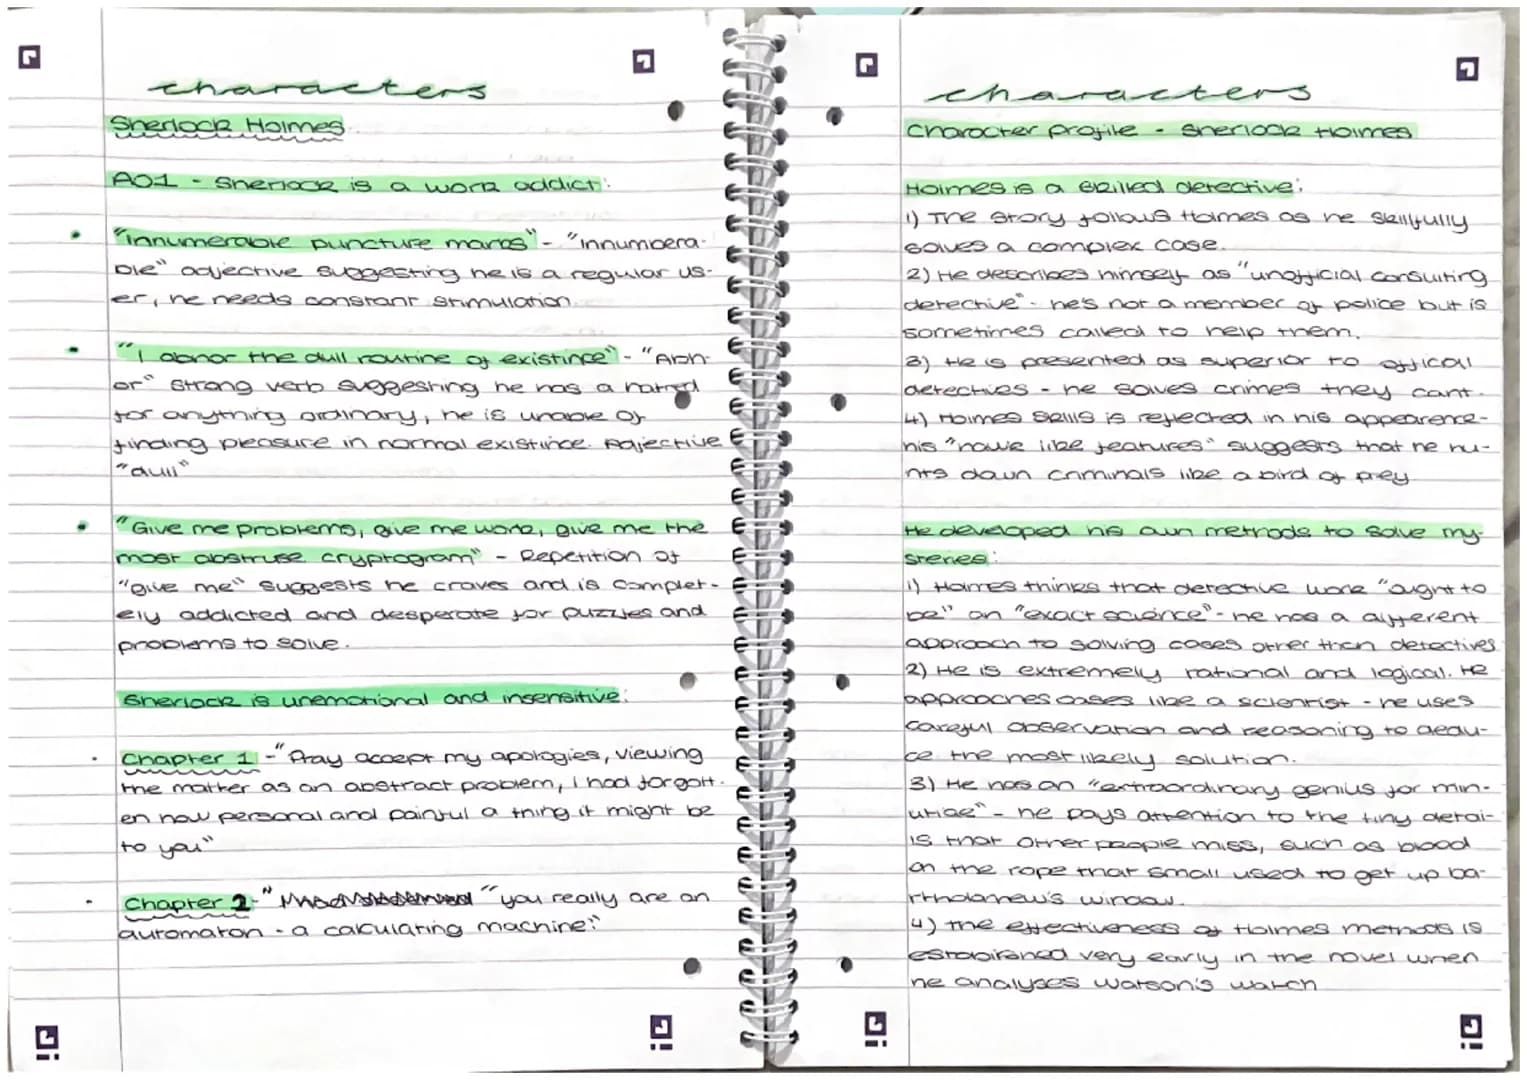 characters
Sherlock Holmes.
AO1 - Sherlock is a work addict:
"innumerable puncture marks" - "innumbera-
ble" adjective suggesting he is a regular us-
er, he needs constant stimulation.
"I abhor the dull routine of existince" - "Abh-
or" strong verb suggesting he has a hatred
for anything ordinary, he is unable of
finding pleasure in normal existince. Adjective
"dull"
"Give me problems, give me work, give me the
most abstruse cryptogram" - Repetition of
"give me" suggests he craves and is complet-
ely addicted and desperate for puzzles and
problems to solve.
Sherlock is unemotional and insensitive:
Chapter 1 - "Pray accept my apologies, viewing
the matter as an abstract problem, I had forgott-
en how personal and painful a thing it might be
to you"
Chapter 2 - " "you really are an
automaton - a calculating machine:"
characters
Character profile - Sherlock Holmes
Holmes is a skilled detective:
1) The story follows Holmes as he skillfully
solves a complex case.
2) He describes himself as "unofficial consulting
detective" - he's not a member of police but is
sometimes called to help them.
3) He is presented as superior to offical
detectives - he solves crimes they cant.
4) Holmes skills is reflected in his appearence-
his "hawk like features" suggests that he hu-
nts down criminals like a bird of prey
He developed his own methods to solve my-
steries:
1) Holmes thinks that detective work "ought to
be" an "exact science" - he has a different
approach to solving cases other than detectives
2) He is extremely rational and logical. He
approaches cases like a scientist - he uses
careful observation and reasoning to dedu-
ce the most likely solution.
3) He has an "extraordinary genius for min-
utiae" - he pays attention to the tiny detai-
ls that other people miss, such as blood
on the rope that small used to get up ba-
rtholomew's window.
4) The effectiveness of Holmes methods is
established very early in the novel when
he analyses Watson's watch